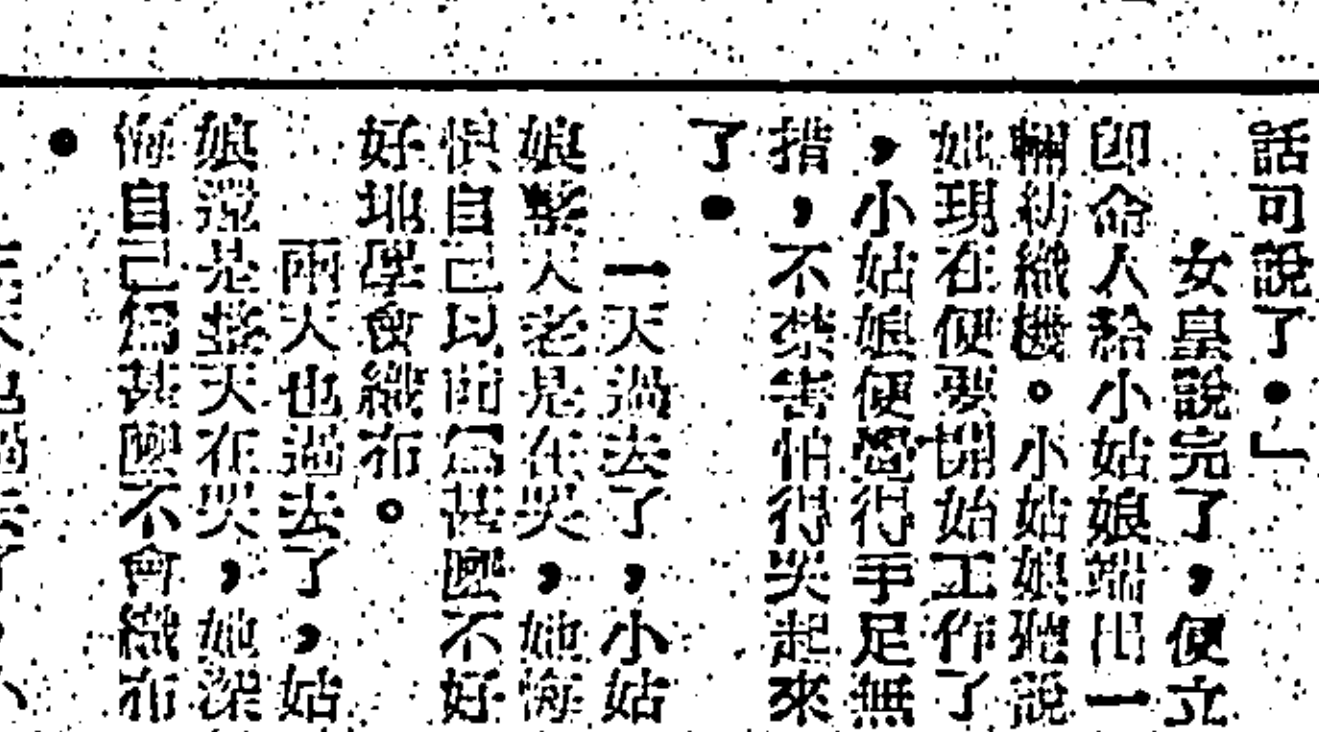 話可說了。」
女皇說完了，便立
卽命人給小姑娘端出一
輛紡織機。小姑娘聽說
她現在便要開始工作了
，小姑娘便覺得手足無
措，不禁害怕得哭起來
了。
一天過去了，小姑
娘整天老是在哭，她悔
恨自己以前爲甚麼不好
好地學會織布。
兩天也過去了，姑
娘還是整天在哭，她深
悔自己爲甚麼不會織布
。
天也過去了，小